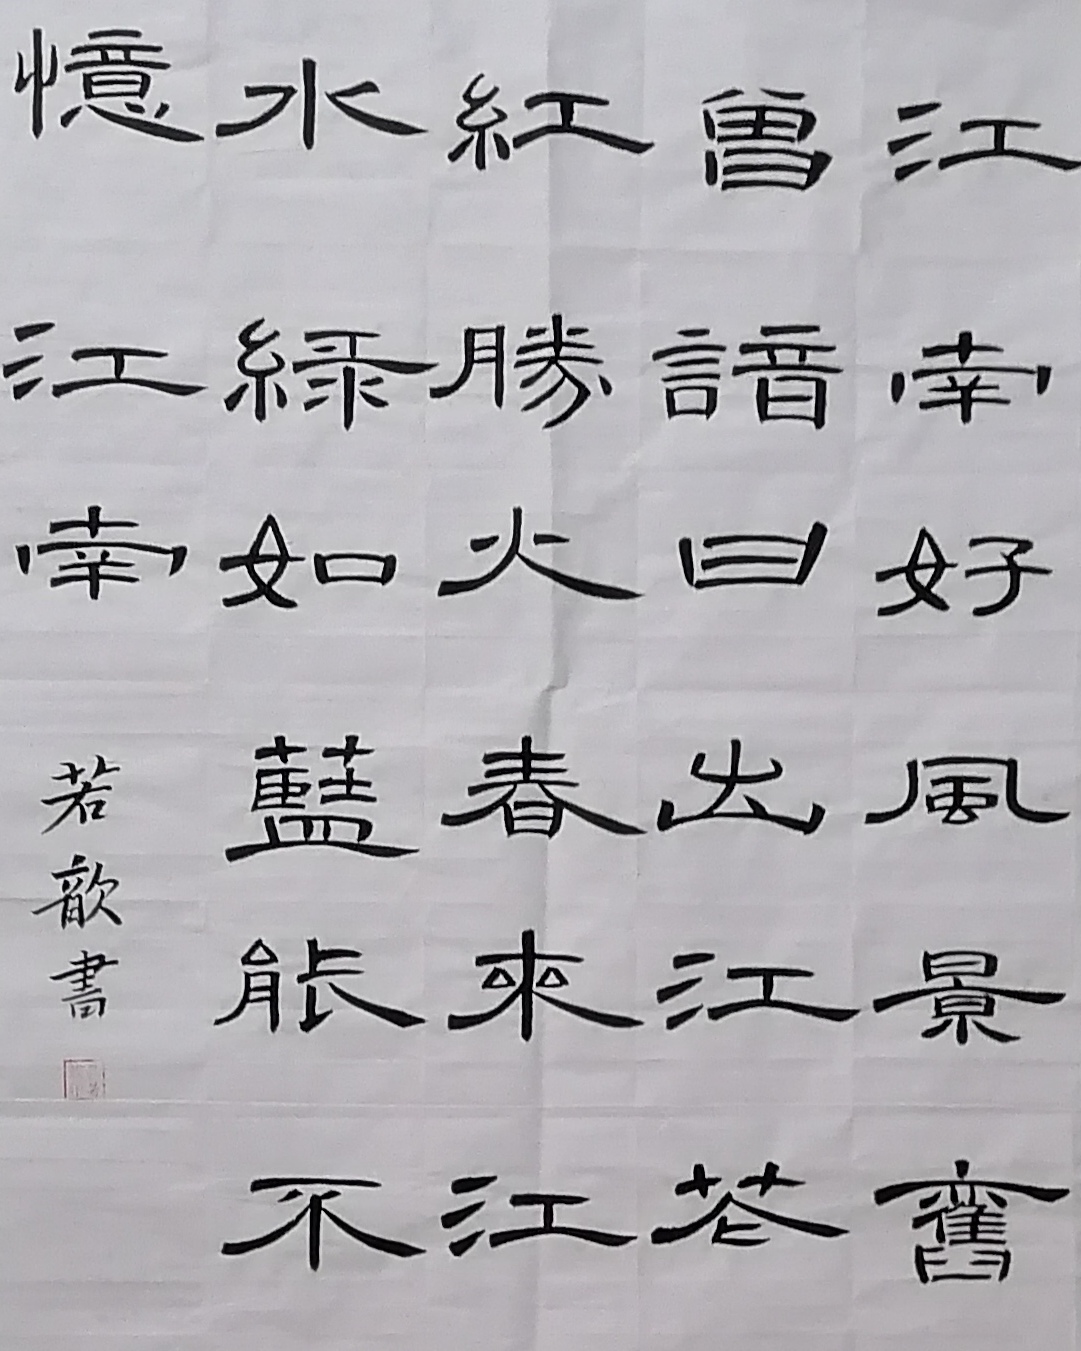 江南好風景舊
曾諳日出江花
紅勝火春來江
水綠如藍能不
憶江南
若歆書